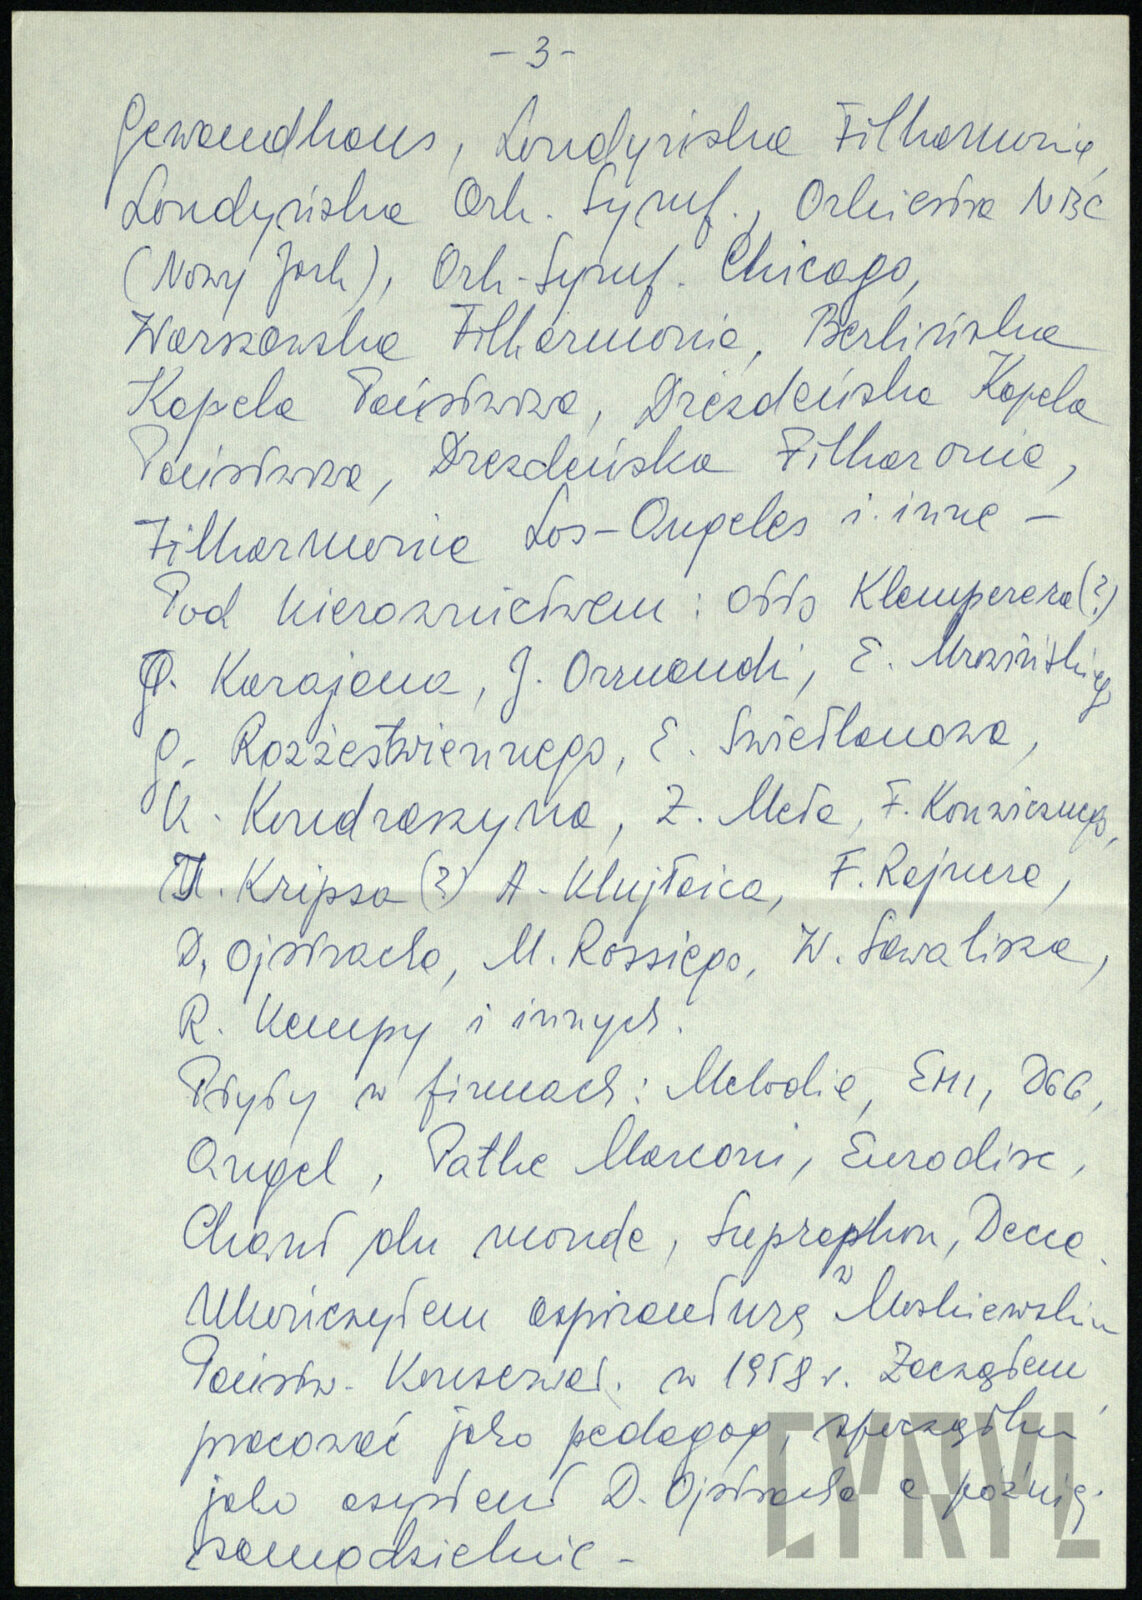 - 3 -
Gewandhaus, Londyńska Filharmonia,
Londyńska Ork. Symf., Orkiestra NBC
(Nowy Jork), Ork-Symf. Chicago,
Warszawska Filharmonia, Berlińska
Kapela Państwowa, Drezdeńska Kapela
Państwowa, Drezdeńska Filharonia,
Filharmonia Los-Angeles i inne -
Pod kierownictwem: Otto Klemperera (?)
Karajana, J. Ormandi, E. Mrawińskiego
G. Rozżestwiennego, E. Swietłanowa,
K. Kondraszyna, Z. Meta, F. Konwicznego,
Kripsa (?) A. Klujtaica, F. Rajnera,
D. Ojstracha, M. Rossiego, W. Sawalisza,
R. Kempy i innych.
Płyty w firmach: Melodia, EMI, DGG,
Angel, Pathe Marconi, Eurodisc,
Chant du monde, Supraphon, Decca.
Ukończyłem aspiranturę w Moskiewskim
Państw. Konserwat. w 1958 r. Zacząłem
pracować jako pedagog, z początku
jako asystent D. Ojstracha a później
samodzielnie -
CYRYL